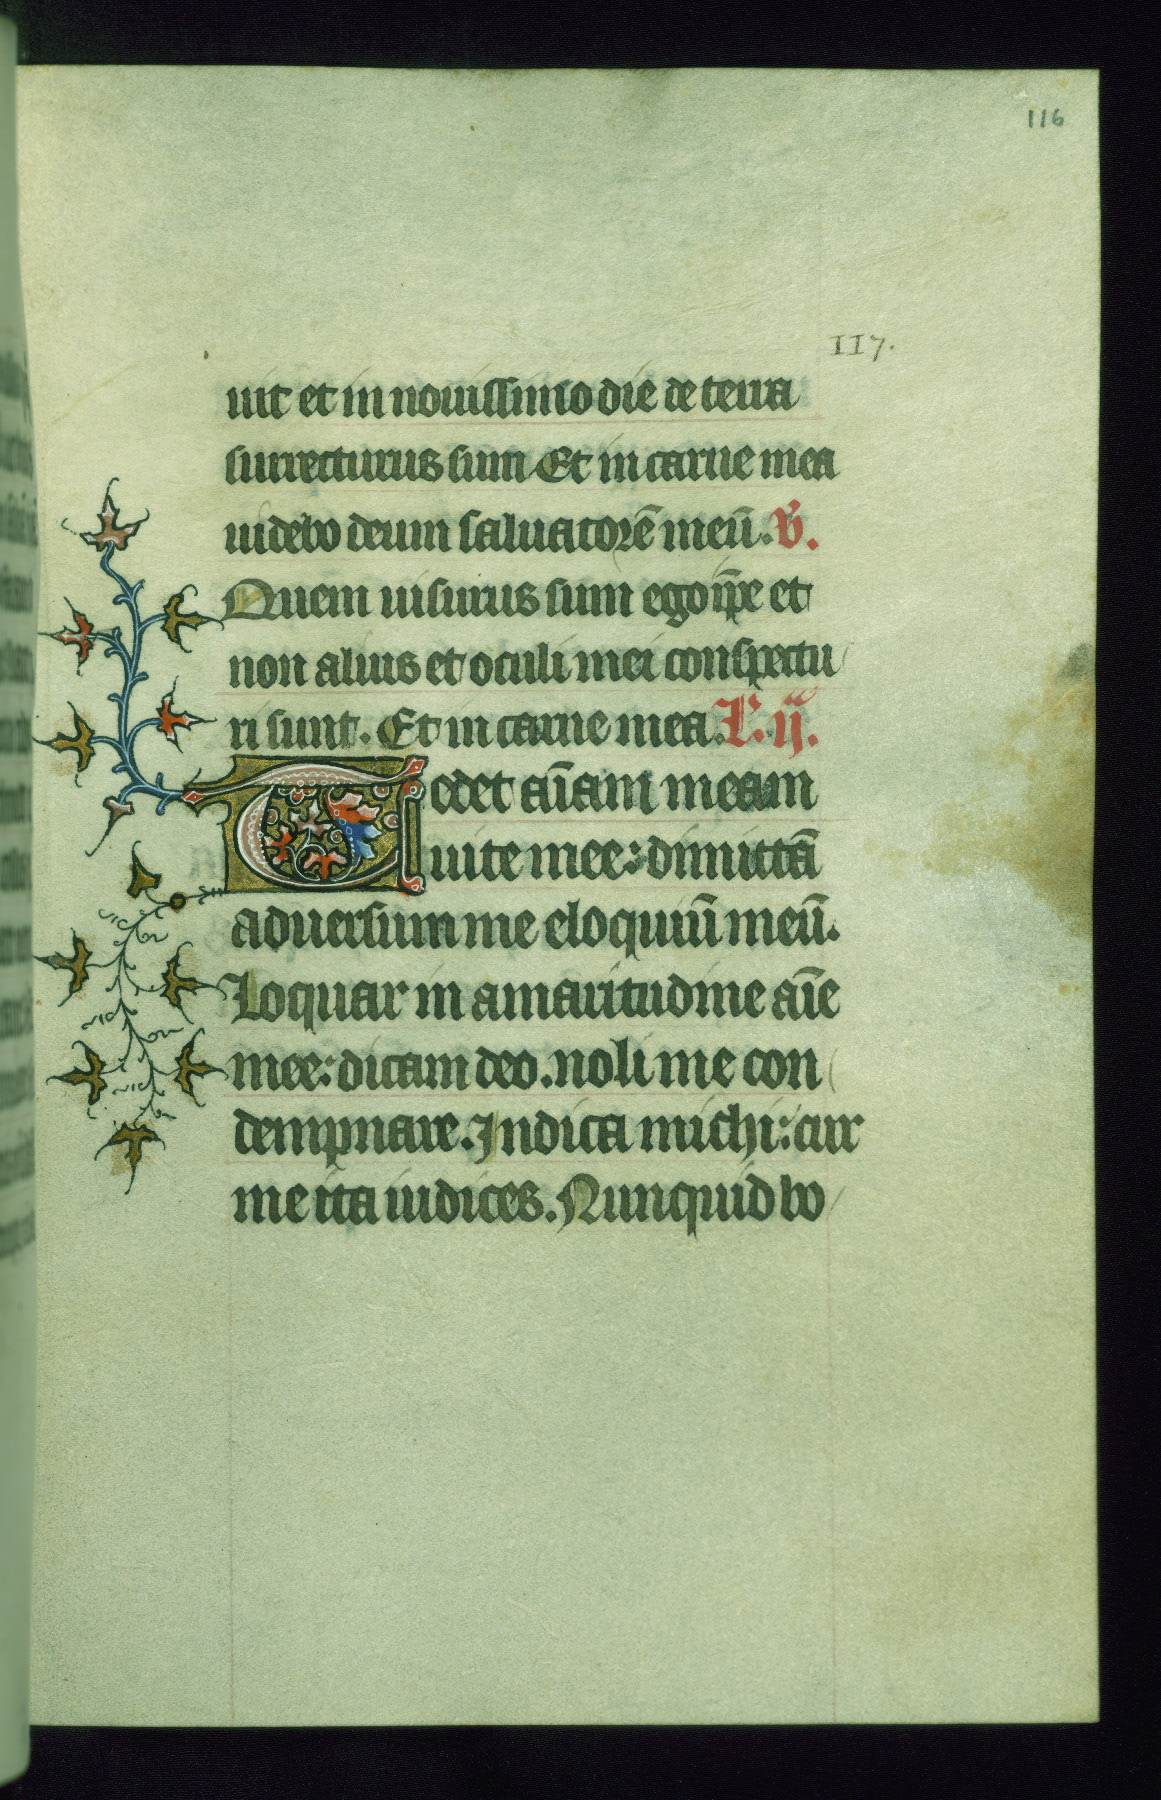 116
117.
uit et in nouissimo die de terra
surrecturus sum Et in carne mea
uidebo deum saluatorē meū. V.
Quem uisurus sum ego ip̄e et
non alius et oculi mei conspectu
ri sunt. Et in carne mea. L. ij.
Tedet aīam meam
uite mee: dimittā
aduersum me eloquiū meū.
Loquar in amaritudine aīe
mee: dicam deo. noli me con
dempnare. Indica michi: cur
me ita iudices. Nunquid bo